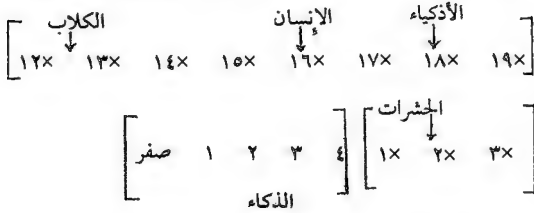 الأذكياء الإنسان الكلاب
١٢× ١٣× ١٤× ١٥× ١٦× ١٧× ١٨× ١٩×
الحشرات
صفر ١ ٢ ٣ ٤ ١× ٢× ٣×
الذكاء